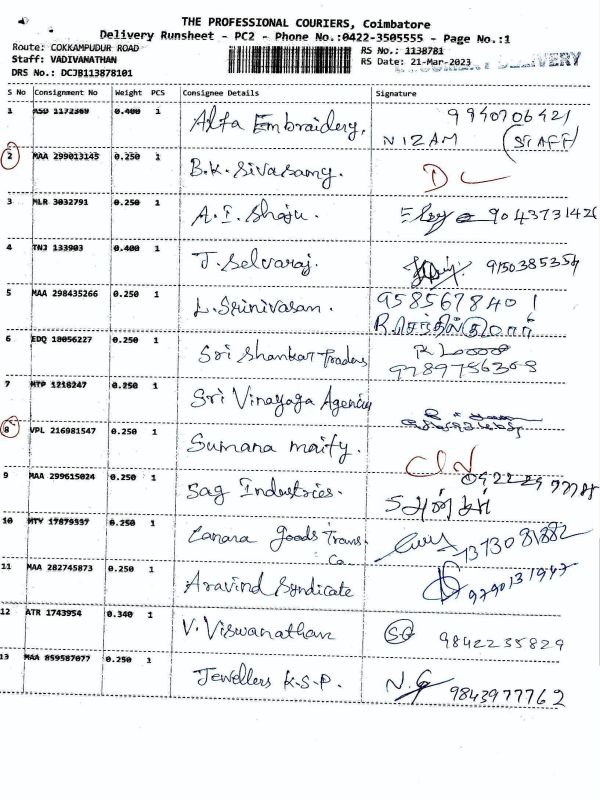 THE PROFESSIONAL COURIERS, Coimbatore
Delivery Runsheet - PC2 - Phone No.:0422-3505555 - Page No.:1
Route: COKKAMPUDUR ROAD RS No.: 1138781
Staff: VADIVANATHAN RS Date: 21-Mar-2023 DELIVERY
DRS No.: DCJB113878101
S No Consignment No Weight PCS Consignee Details Signature
1 ASD 1172369 0.400 1 Alfa Embraidery, 9940706421
NIZAM (STAFF)
2 MAA 299013145 0.250 1 B.K. Sivasamy. DL
3 MLR 3032791 0.250 1 A.I. Shaju. 9043731426
4 TNJ 133903 0.400 1 J. Selvaraj. 9150385354
5 MAA 298435266 0.250 1 L. Srinivasan. 9585678401
R.செந்தில்குமார்
6 EDQ 18056227 0.250 1 Sri Shankar Traders
9789756303
7 MTP 1218247 0.250 1 Sri Vinayaga Agencies
8 VPL 216981547 0.250 1 Sumana maity. CIN
9 MAA 299615024 0.250 1 Sag Industries.
10 MTY 17879537 0.250 1 Canara goods Trans.
Co
11 MAA 282745873 0.250 1 Aravind Syndicate
12 ATR 1743954 0.340 1 V. Viswanathan SG 9842235829
13 MAA 859587077 0.250 1 Jewellers K.S.P. N.G 9843977762